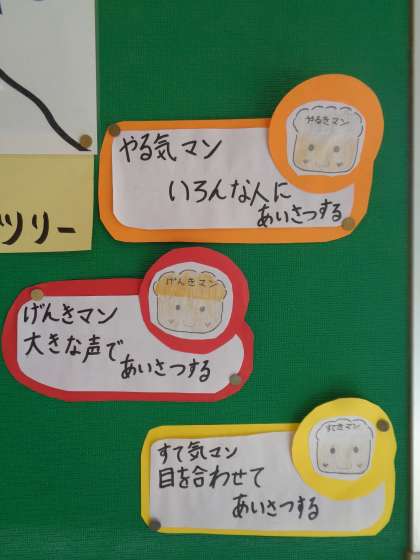 ツリー
やる気マン
いろんな人に
あいさつする
やるきマン
げんきマン
大きな声で
あいさつする
げんきマン
すて気マン
目を合わせて
あいさつする
すてきマン